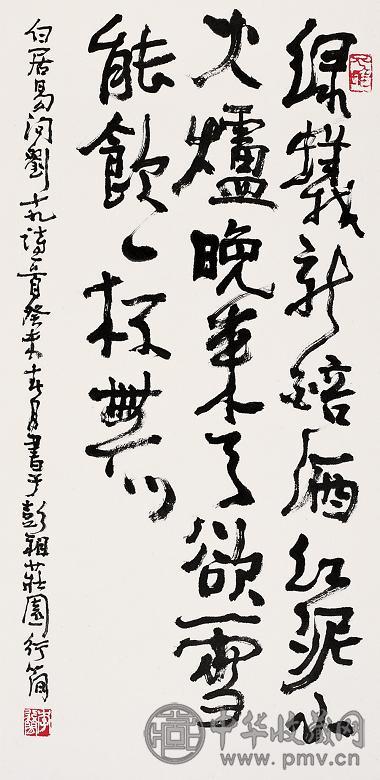 绿蟻新醅酒红泥小
火爐晚来天欲雪
能飲一杯無
白居易问劉十九詩一首癸未十月書于彭祖莊園行簡
中华收藏网
www.pmv.cn